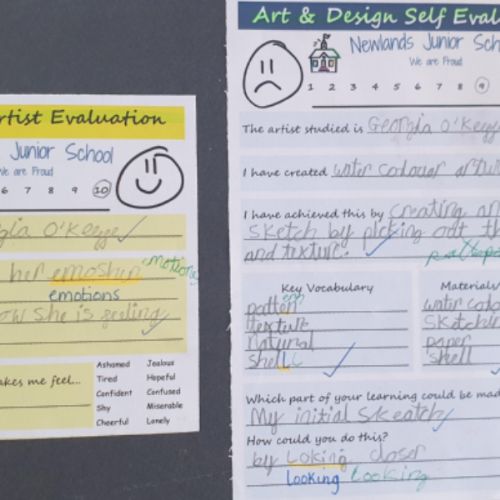 rtist Evaluation
Junior School
We are Proud
6 7 8 9 10
gia O'Keeffe
her emoshin emotions
emotions
ow she is feeling
akes me feel...
Ashamed Jealous
Tired Hopeful
Confident Confused
Shy Miserable
Cheerful Lonely
Art & Design Self Eval
Newlands Junior Sch
We are Proud
1 2 3 4 5 6 7 8 9
The artist studied is Georgia O'Keeffe
I have created water colour
I have achieved this by creating an
sketch by picking out th
and texture.
Key Vocabulary
pattern
texture
Natural
shell
Materials
water colo
Sketchin
paper
shell
Which part of your learning could be mad
My initial skeatch
How could you do this?
by Loking closer
Looking Looking